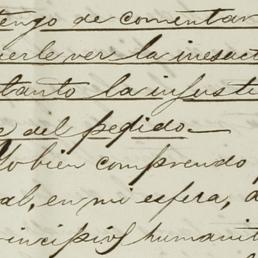 tengo de comentar
erle ver la inesact
tanto la injusti
e del pedido.
Yo bien comprendo
al, en mi esfera, d
rincipios humanit